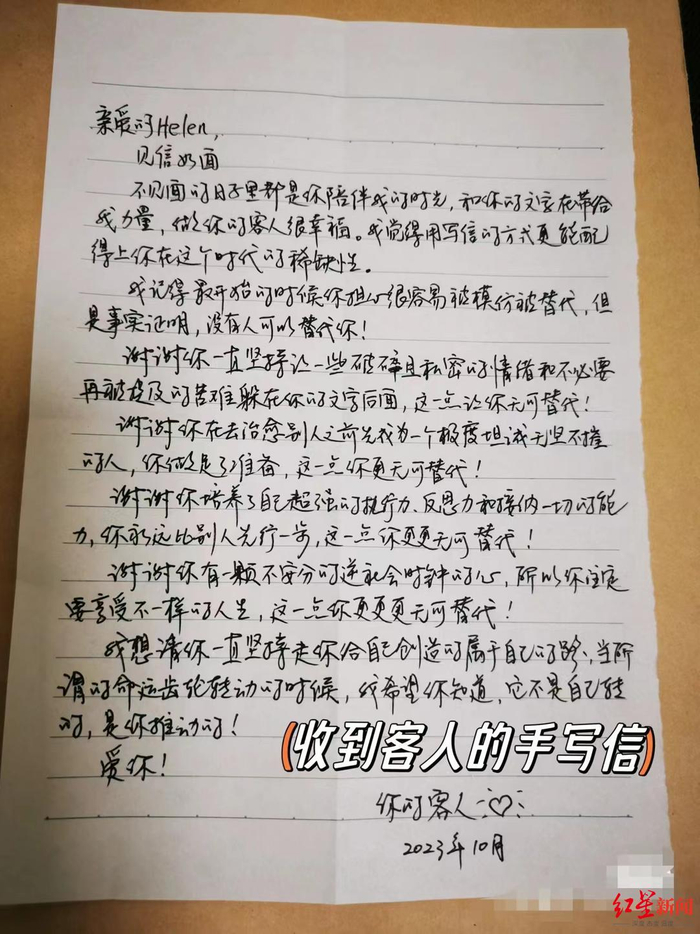 亲爱的Helen,
见信如面
不见面的日子里都是你陪伴我的时光，和你的文字在带给
我力量，做你的客人很幸福。我觉得用写信的方式更能配
得上你在这个时代的稀缺性。
我记得最开始的时候你担心很容易被模仿被替代，但
是事实证明，没有人可以替代你！
谢谢你一直坚持让一些破碎且私密的情绪和不必要
再被提及的苦难躲在你的文字后面，这一点让你无可替代！
谢谢你在去治愈别人之前先成为一个极度坦诚无坚不摧
的人，你做足了准备，这一点你更无可替代！
谢谢你培养了自己超强的执行力、反思力和接纳一切的能
力，你永远比别人先行一步，这一点你更更无可替代！
谢谢你有一颗不安分的逆社会时钟的心，所以你注定
要享受不一样的人生，这一点你更更更无可替代！
我想请你一直坚持走你给自己创造的属于自己的路，当所
谓的命运齿轮转动的时候，我希望你知道，它不是自己转
的，是你推动的！
爱你！
(收到客人的手写信)
你的客人
2023年10月
红星新闻